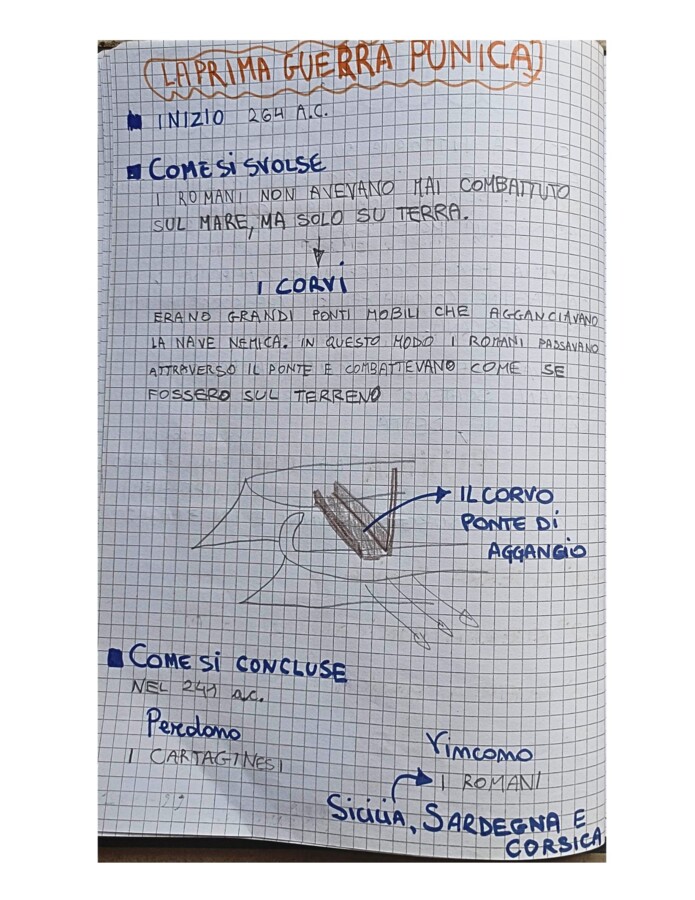 LA PRIMA GUERRA PUNICA
INIZIO 264 A.C.
COME Si SVOLSE
I ROMANI NON AVEVANO MAI COMBATTUTO
SUL MARE, MA SOLO SU TERRA.
I CORVi
ERANO GRANDI PONTI MOBILI CHE AGGANCIAVANO
LA NAVE NEMICA. IN QUESTO MODO I ROMANI PASSAVANO
ATTRAVERSO IL PONTE E COMBATTEVANO COME SE
FOSSERO SUL TERRENO
IL CORVO
PONTE Di
AGGANCiO
COME Si CONCLUSE
NEL 241 a.c.
Perdono
I CARTAGINESI
Vincono
I ROMANI
Sicilia, SARDEGNA E
CORSICA